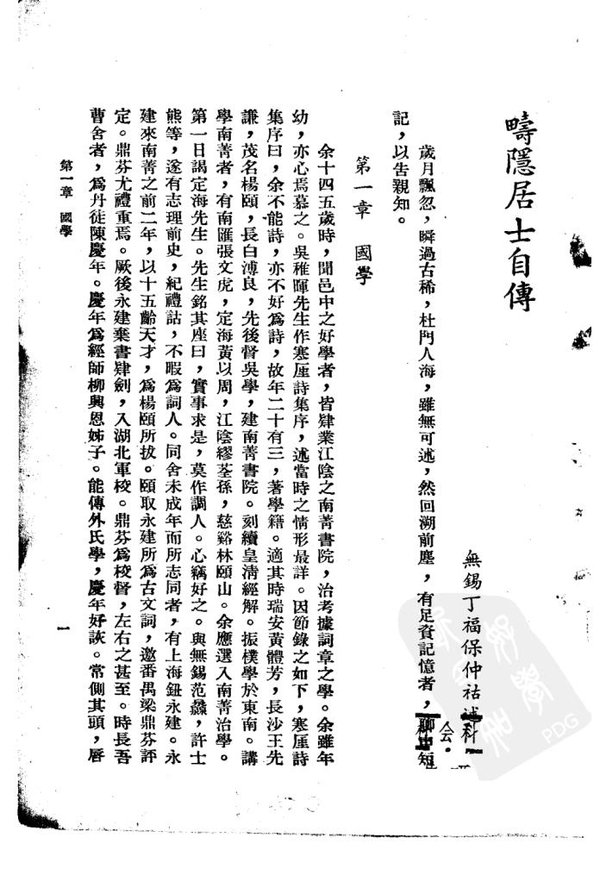 疇隱居士自傳
無錫丁福保仲祜述
歲月飄忽，瞬過古稀，杜門人海，雖無可述，然回溯前塵，有足資記憶者，聊申短
記，以告親知。
第一章　國學
余十四五歲時，聞邑中之好學者，皆肄業江陰之南菁書院，治考據詞章之學。余雖年
幼，亦心焉慕之。吳稚暉先生作寒厓詩集序，述當時之情形最詳。因節錄之如下，寒厓詩
集序曰，余不能詩，亦不好爲詩，故年二十有三，著學籍。適其時瑞安黃體芳，長沙王先
謙，茂名楊頤，長白溥良，先後督吳學，建南菁書院。刻續皇清經解。振樸學於東南。講
學南菁者，有南匯張文虎，定海黃以周，江陰繆荃孫，慈谿林頤山。余應選入南菁治學。
第一日謁定海先生。先生銘其座曰，實事求是，莫作調人。心竊好之。與無錫范蠡，許士
熊等，遂有志理前史，紀禮詁，不暇爲詞人。同舍未成年而所志同者，有上海鈕永建。永
建來南菁之前二年，以十五齡天才，爲楊頤所拔。頤取永建所爲古文詞，邀番禺梁鼎芬評
定。鼎芬尤禮重焉。厥後永建棄書肄劍，入湖北軍校。鼎芬爲校督，左右之甚至。時長吾
曹舍者，爲丹徒陳慶年。慶年爲經師柳興恩姊子。能傳外氏學，慶年好詼。常側其頭，唇
第一章　國學
一
科
会
PDG